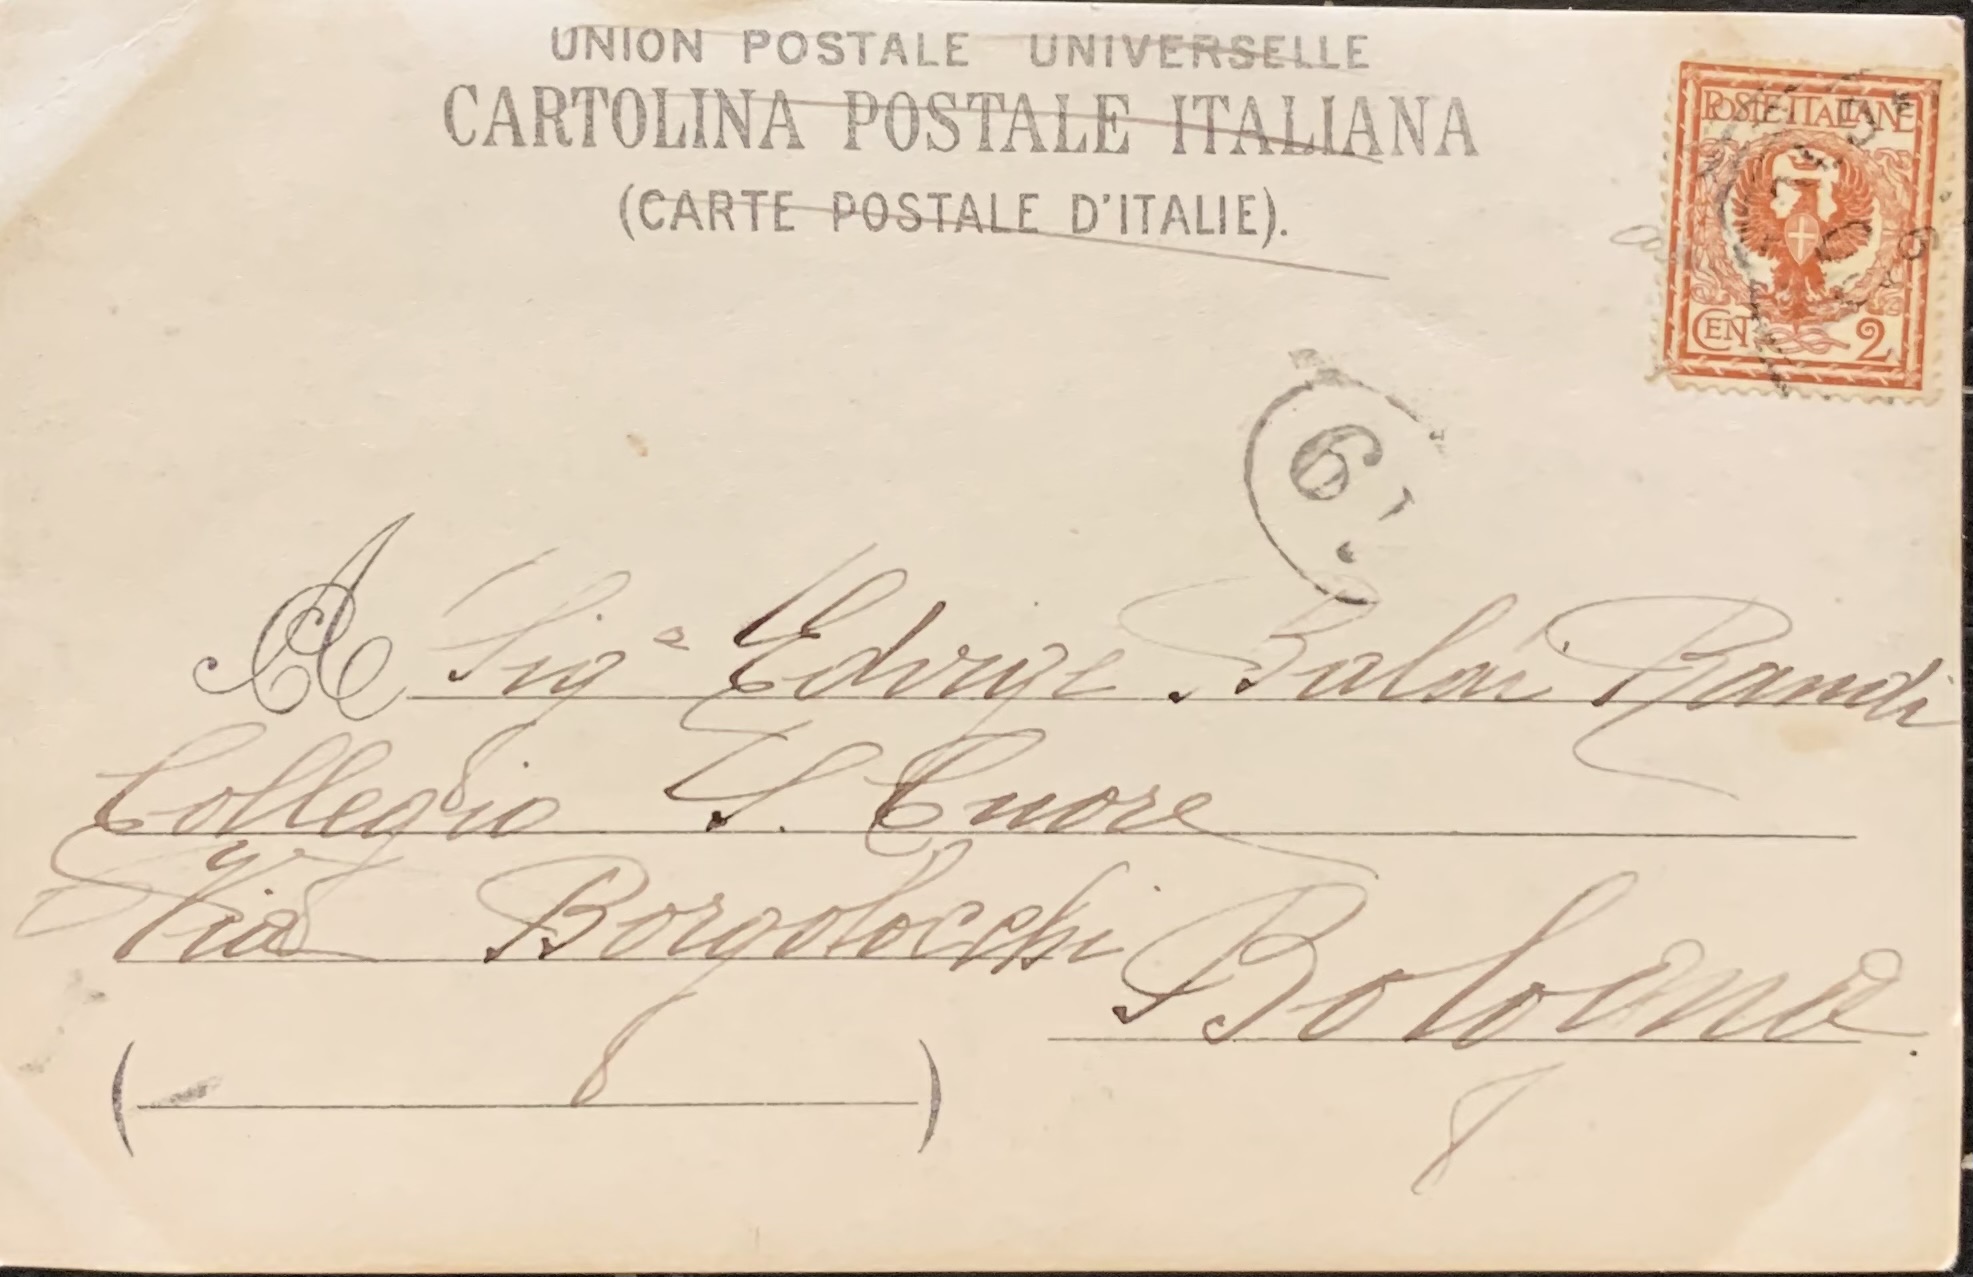 UNION POSTALE UNIVERSELLE
CARTOLINA POSTALE ITALIANA
(CARTE POSTALE D'ITALIE).
POSTE ITALIANE
CEN 2
61
A Sigª Edvige Baldi Bandi
Collegio S. Cuore
Via Borgolocchi
Bologna